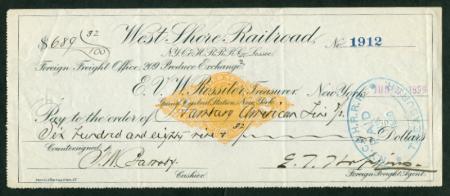 $689 32/100
West Shore Railroad,
No. 1912
N.Y.C. & H.R.R.R. Co. Lessee.
Foreign Freight Office, 209 Produce Exchange,
E. V. W. Rossiter, Treasurer, New York
Grand Central Station, New York
Pay to the order of American Line
Six hundred and eighty nine & 32 Dollars
Countersigned
Cashier.
Foreign Freight Agent.
PAID